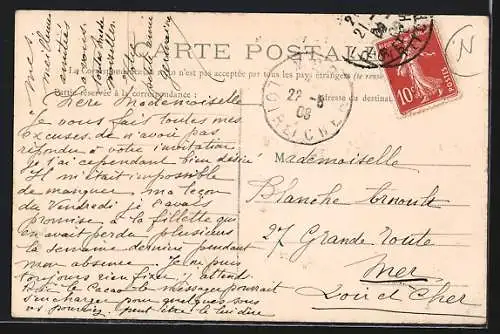 CARTE POSTALE
La Correspondance n'est pas acceptée par tous les pays étrangers
Partie réservée à la correspondance
Adresse du destinat
mes meilleures
amitiés
votre
petite amie
Chère Mademoiselle
Je vous fait toutes mes
excuses de n'avoir pas
répondu à votre invitation
je l'ai cependant bien désiré
Il m'était impossible
de manquer ma leçon
du Vendredi je l'avais
promise à la fillette qui
en avait perdu plusieurs
la semaine dernière pendant
mon absence. Je ne puis
toujours rien fixer j'attend
Pour le Cacao le messager pourrait
s'en charger pour quelques sous
peut être le lui dire
Mademoiselle
Blanche Arnoult
27 Grande Route
Mer
Loir et Cher
22 - 5
09
LOIR-ET-CHER
10
POSTES
N